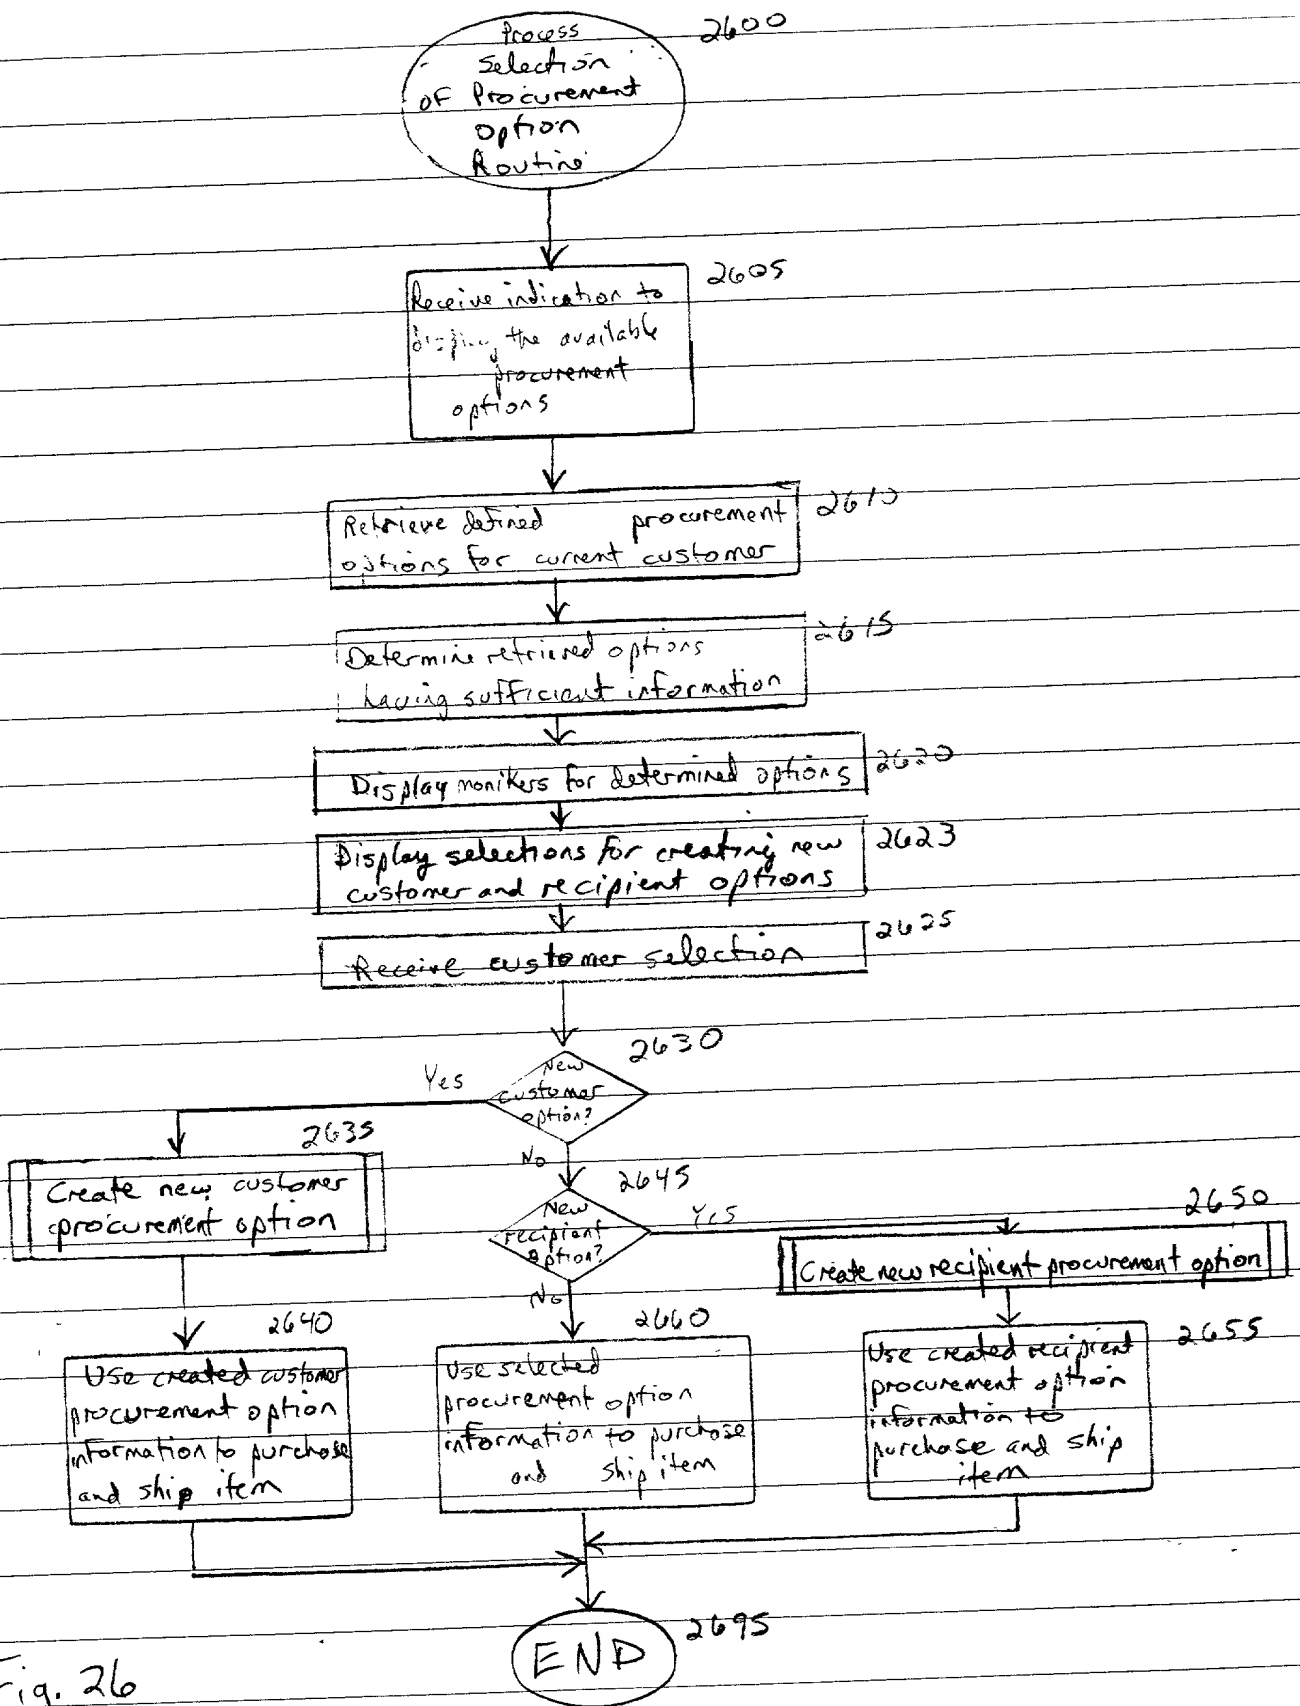 Process
Selection
of Procurement
option
Routine
2600
2605
Receive indication to
the available
procurement
options
2610
Retrieve defined procurement
options for current customer
2615
Determine retrieved options
having sufficient information
2620
Display monikers for determined options
2623
Display selections for creating new
customer and recipient options
2625
Receive customer selection
2630
New
customer
option?
Yes
No
2635
Create new customer
procurement option
2645
New
recipient
option?
Yes
No
2650
Create new recipient procurement option
2640
Use created customer
procurement option
information to purchase
and ship item
2660
Use selected
procurement option
information to purchase
and ship item
2655
Use created recipient
procurement option
information to
purchase and ship
item
END
2695
Fig. 26